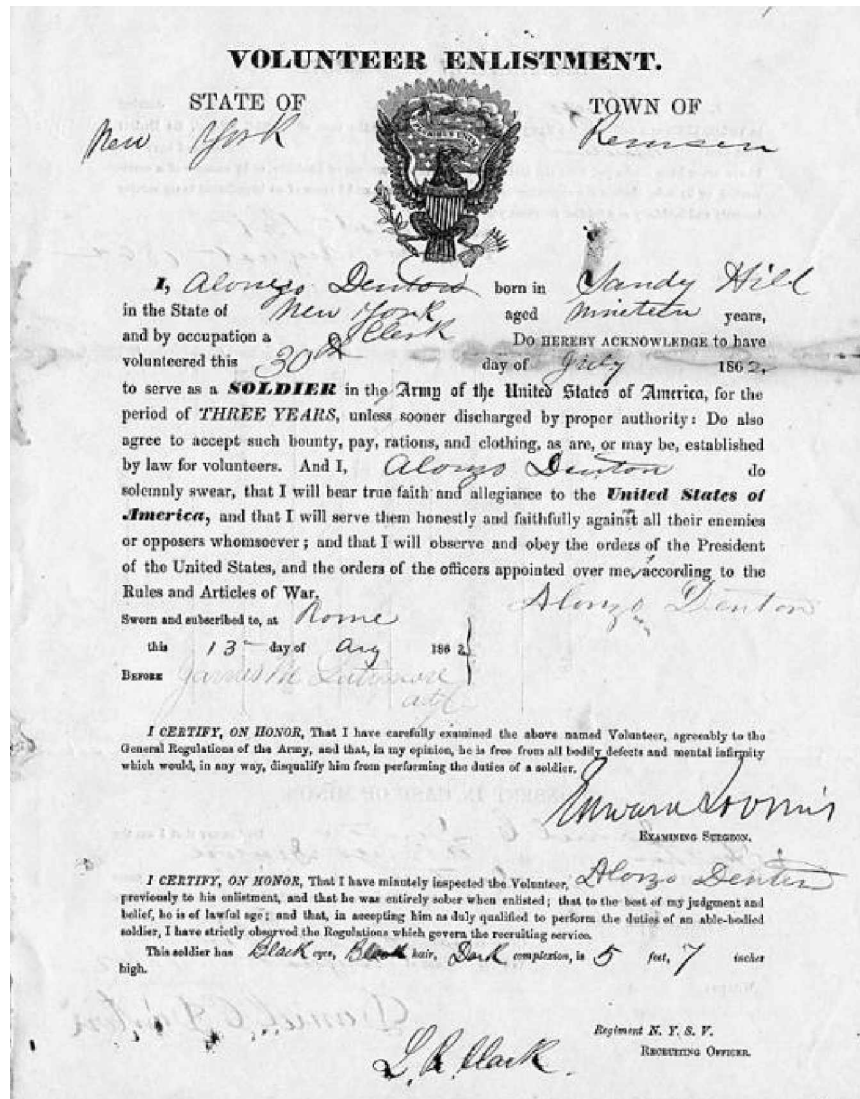 VOLUNTEER ENLISTMENT.
STATE OF TOWN OF
New York Remsen
I, Alonzo Denton born in Sandy Hill
in the State of New York aged nineteen years,
and by occupation a Clerk Do HEREBY ACKNOWLEDGE to have
volunteered this 30th day of July 1862,
to serve as a SOLDIER in the Army of the United States of America, for the
period of THREE YEARS, unless sooner discharged by proper authority: Do also
agree to accept such bounty, pay, rations, and clothing, as are, or may be, established
by law for volunteers. And I, Alonzo Denton do
solemnly swear, that I will bear true faith and allegiance to the United States of
America, and that I will serve them honestly and faithfully against all their enemies
or opposers whomsoever; and that I will observe and obey the orders of the President
of the United States, and the orders of the officers appointed over me, according to the
Rules and Articles of War.
Alonzo Denton
Sworn and subscribed to, at Rome
this 13 day of Aug 1862
BEFORE James M
I CERTIFY, ON HONOR, That I have carefully examined the above named Volunteer, agreeably to the
General Regulations of the Army, and that, in my opinion, he is free from all bodily defects and mental infirmity
which would, in any way, disqualify him from performing the duties of a soldier.
Edward Loomis
EXAMINING SURGEON.
I CERTIFY, ON HONOR, That I have minutely inspected the Volunteer, Alonzo Denton
previously to his enlistment, and that he was entirely sober when enlisted; that to the best of my judgment and
belief, he is of lawful age; and that, in accepting him as duly qualified to perform the duties of an able-bodied
soldier, I have strictly observed the Regulations which govern the recruiting service.
This soldier has Black eyes, Black hair, Dark complexion, is 5 feet, 7 inches
high.
Regiment N. Y. S. V.
L R Clark. RECRUITING OFFICER.